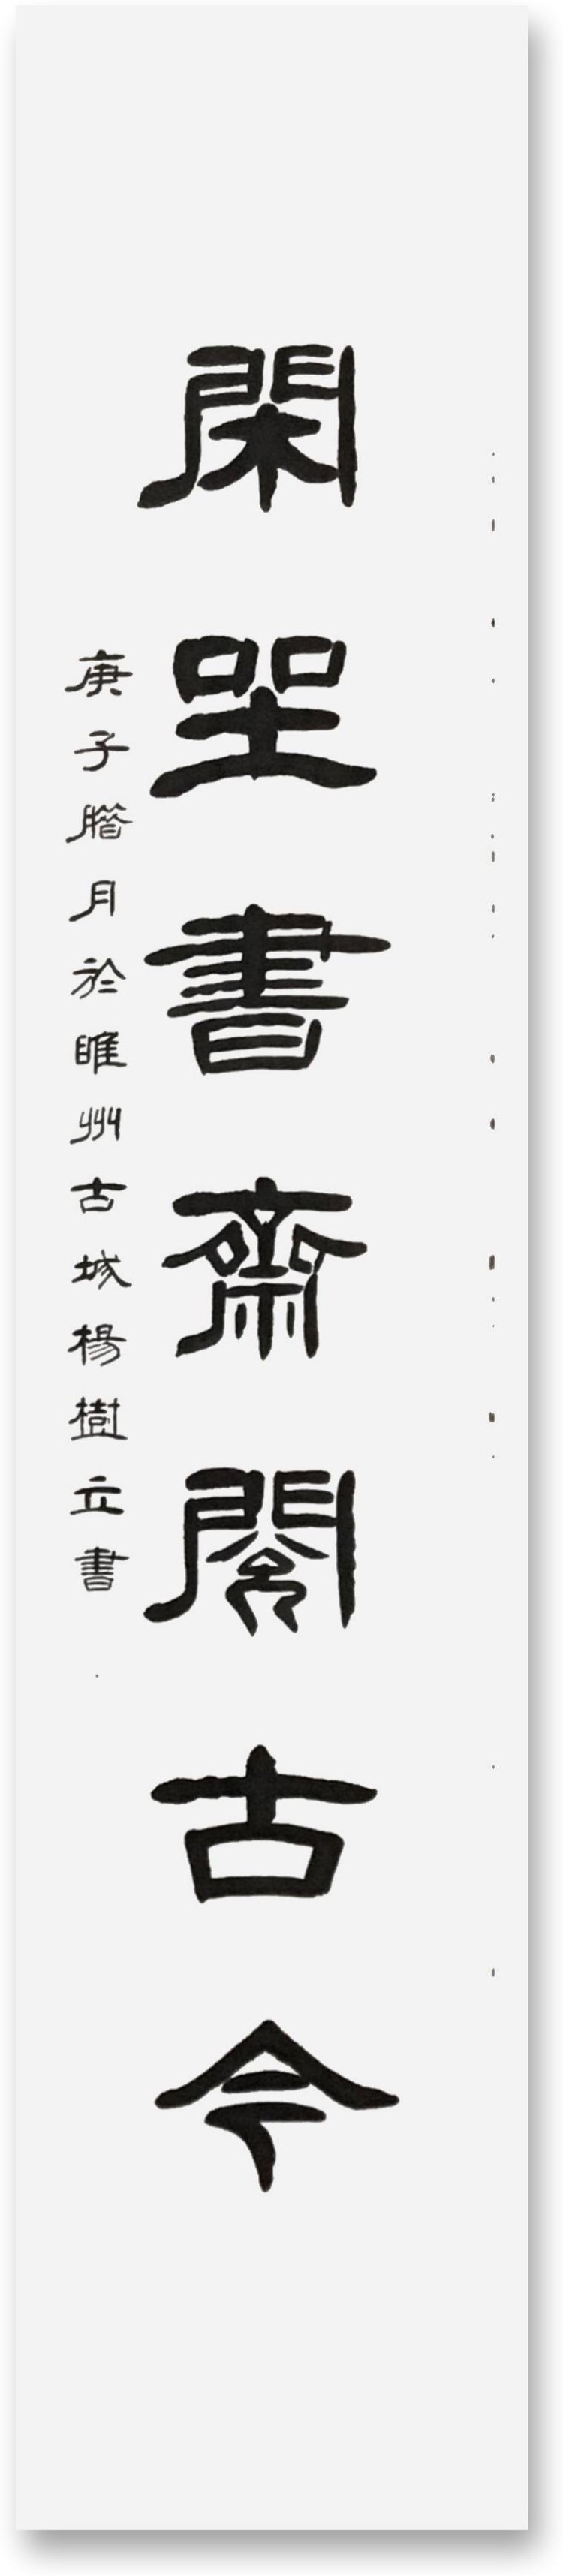 閑坐書齋閱古今
庚子臘月於睢州古城楊樹立書